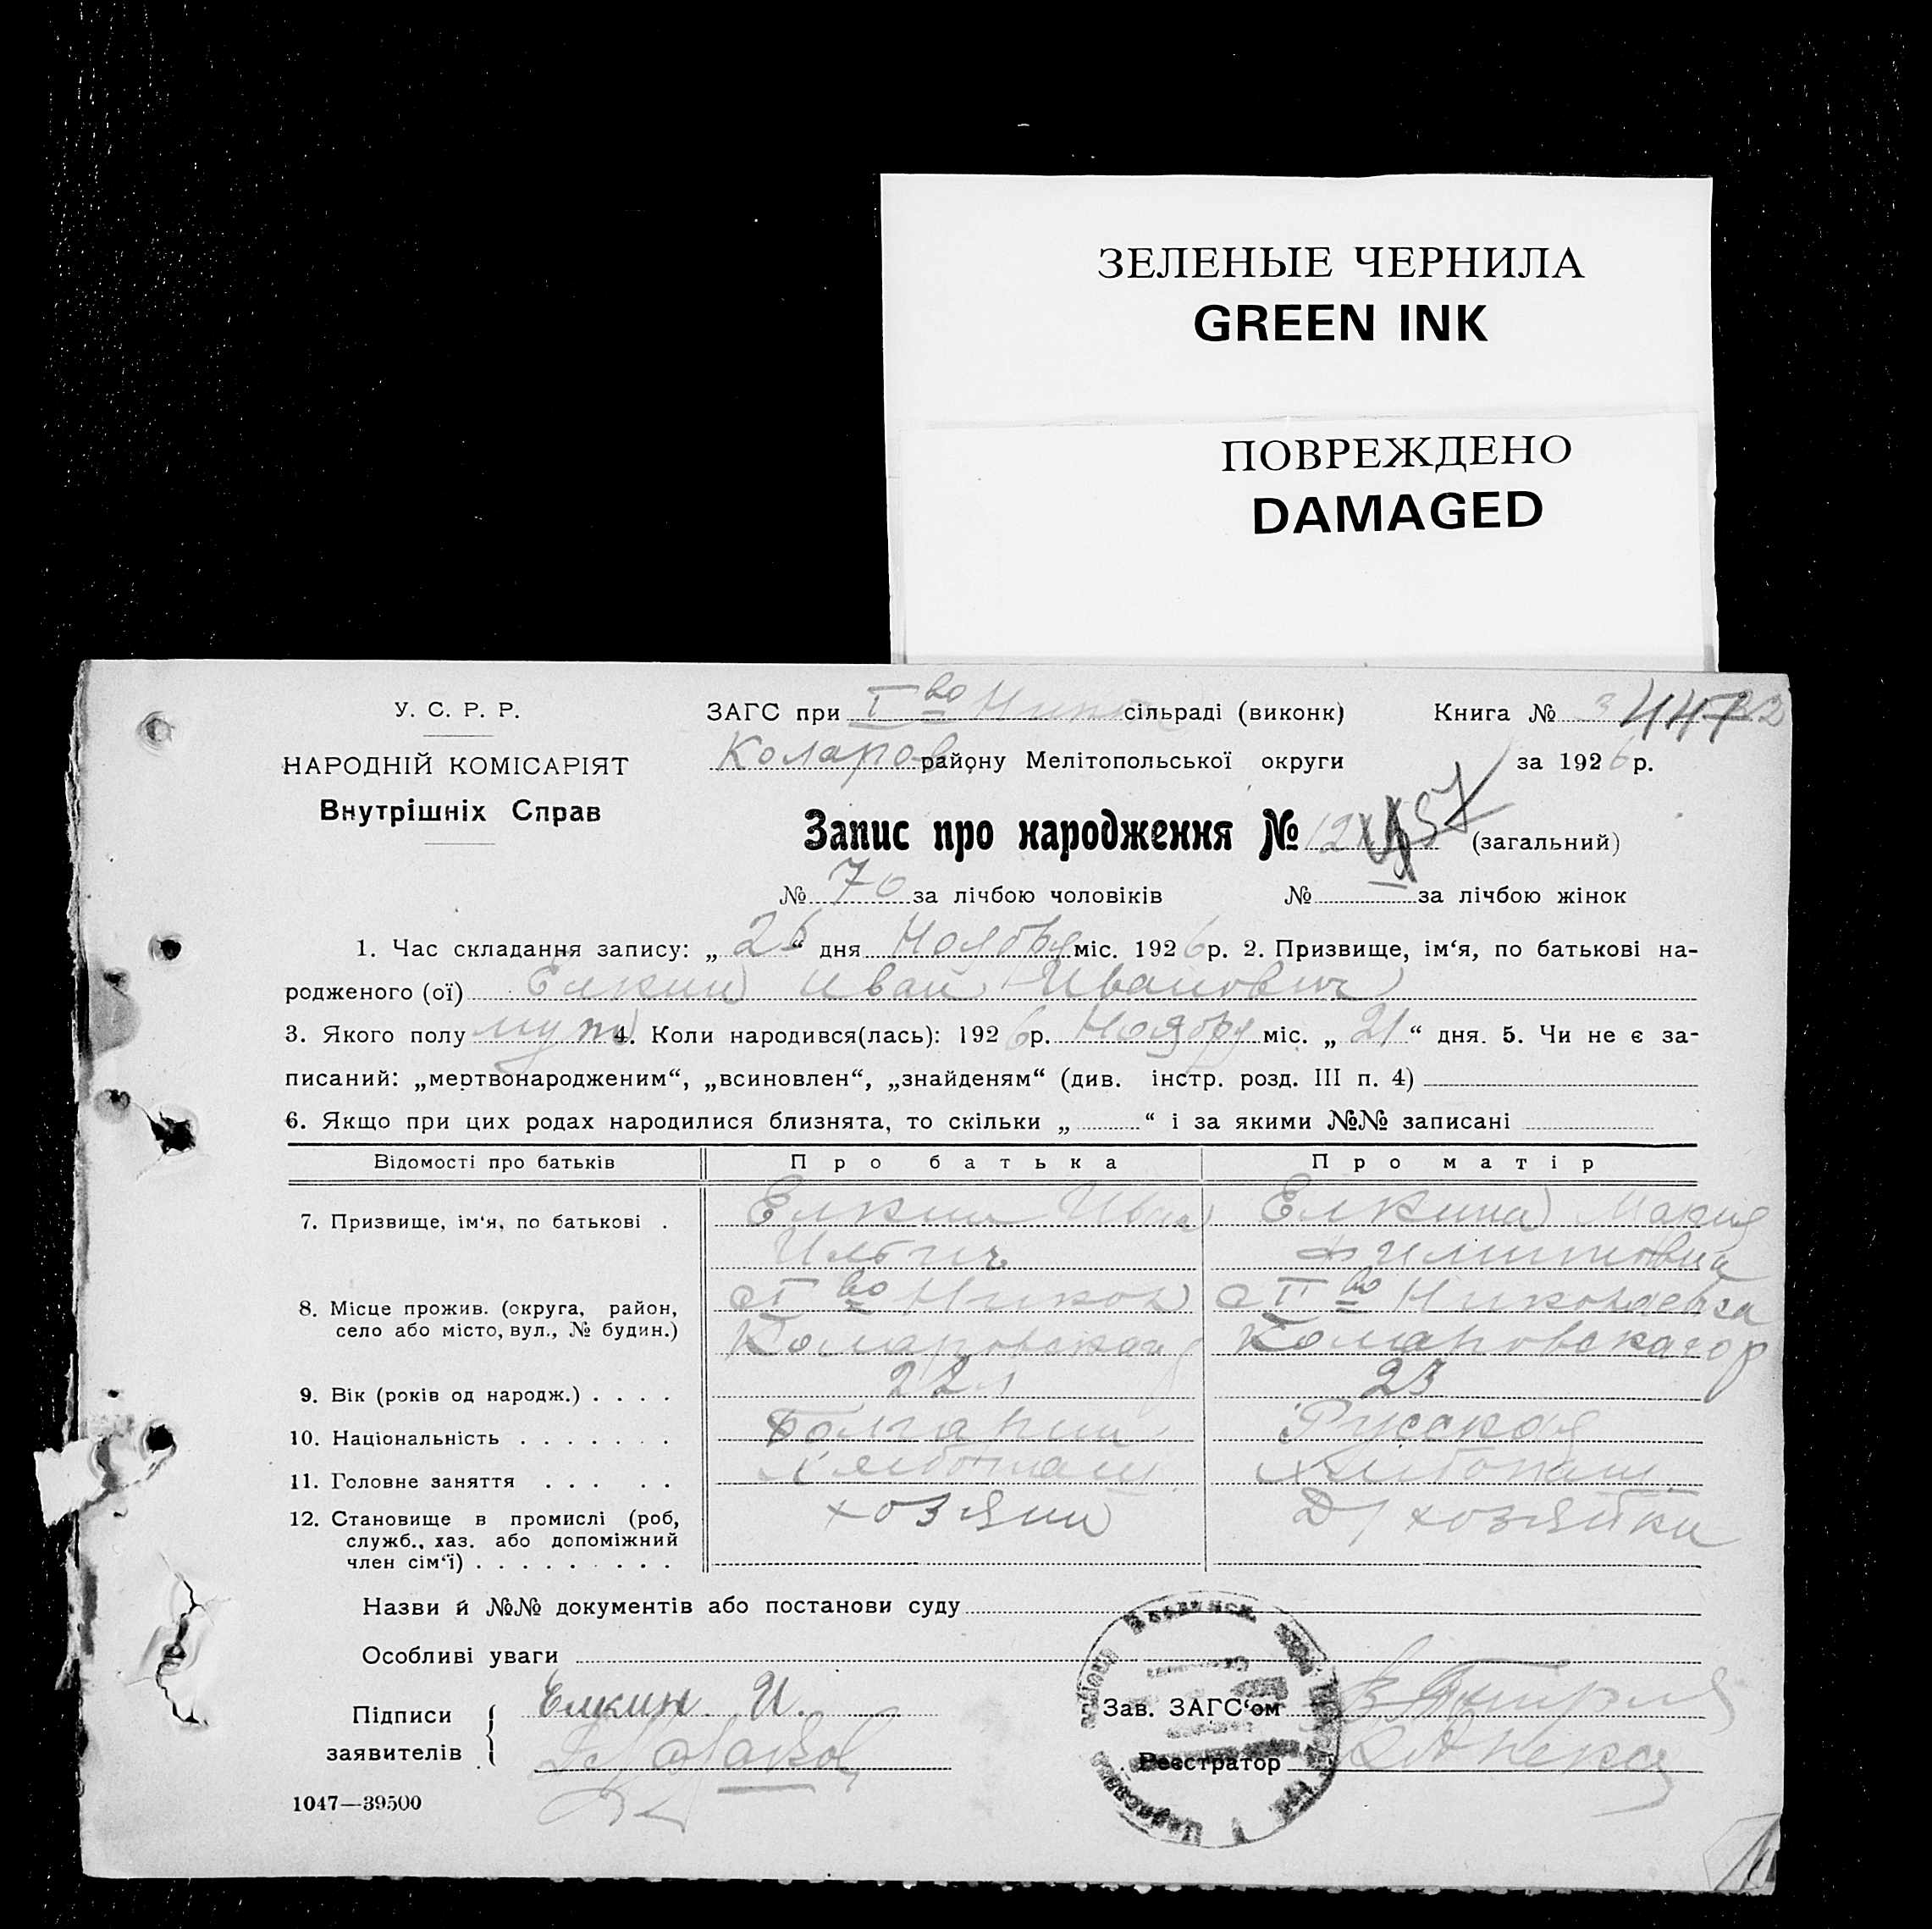 ЗЕЛЕНЫЕ ЧЕРНИЛА
GREEN INK
ПОВРЕЖДЕНО
DAMAGED
У. С. Р. Р.
НАРОДНІЙ КОМІСАРІЯТ
Внутрішніх Справ
ЗАГС при I во Никол сільраді (виконк) Книга №
Коларов району Мелітопольської округи за 1926 р.
Запис про народження № (загальний)
№ 70 за лічбою чоловіків № за лічбою жінок
1. Час складання запису: „ 26 “ дня Ноября міс. 1926 р. 2. Призвище, ім‘я, по батькові на-
родженого (ої) Елкин Иван Иванович
3. Якого полу муж 4. Коли народився(лась): 1926 р. Ноября міс. „ 21 “ дня. 5. Чи не є за-
писаний: „мертвонародженим“, „всиновлен“, „знайденям“ (див. інстр. розд. III п. 4)
6. Якщо при цих родах народилися близнята, то скільки „ “ і за якими №№ записані
Відомості про батьків Про батька Про матір
7. Призвище, ім‘я, по батькові . Елкин Иван Елкина Мария
Ильич Филиповна
8. Місце прожив. (округа, район, с I во Никол с I во Николаевка
село або місто, вул., № будин.) Коларовская Коларовскаго р
9. Вік (років од народж.) . . . . 22 23
10. Національність . . . . . . . Болгарин Русская
11. Головне заняття . . . . . Хлебопаш Хлебопаш
12. Становище в промислі (роб, хозяин Д/хозяйки
служб., хаз. або допоміжний
член сім‘ї) . . . . . . . . .
Назви й №№ документів або постанови суду
Особливі уваги
Підписи Елкин И.
заявителів
Зав. ЗАГС‘ом
Реєстратор
1047—39500